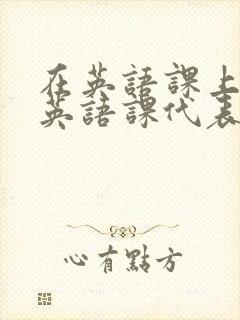 在英語課上
英語課代表
心有點方